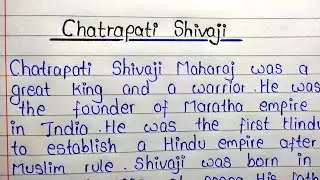 Chatrapati Shivaji
Chatrapati Shivaji Maharaj was a
great king and a warrior. He was
the founder of Maratha empire
in India. He was the first Hindu
to establish a Hindu empire after
Muslim rule. Shivaji was born in